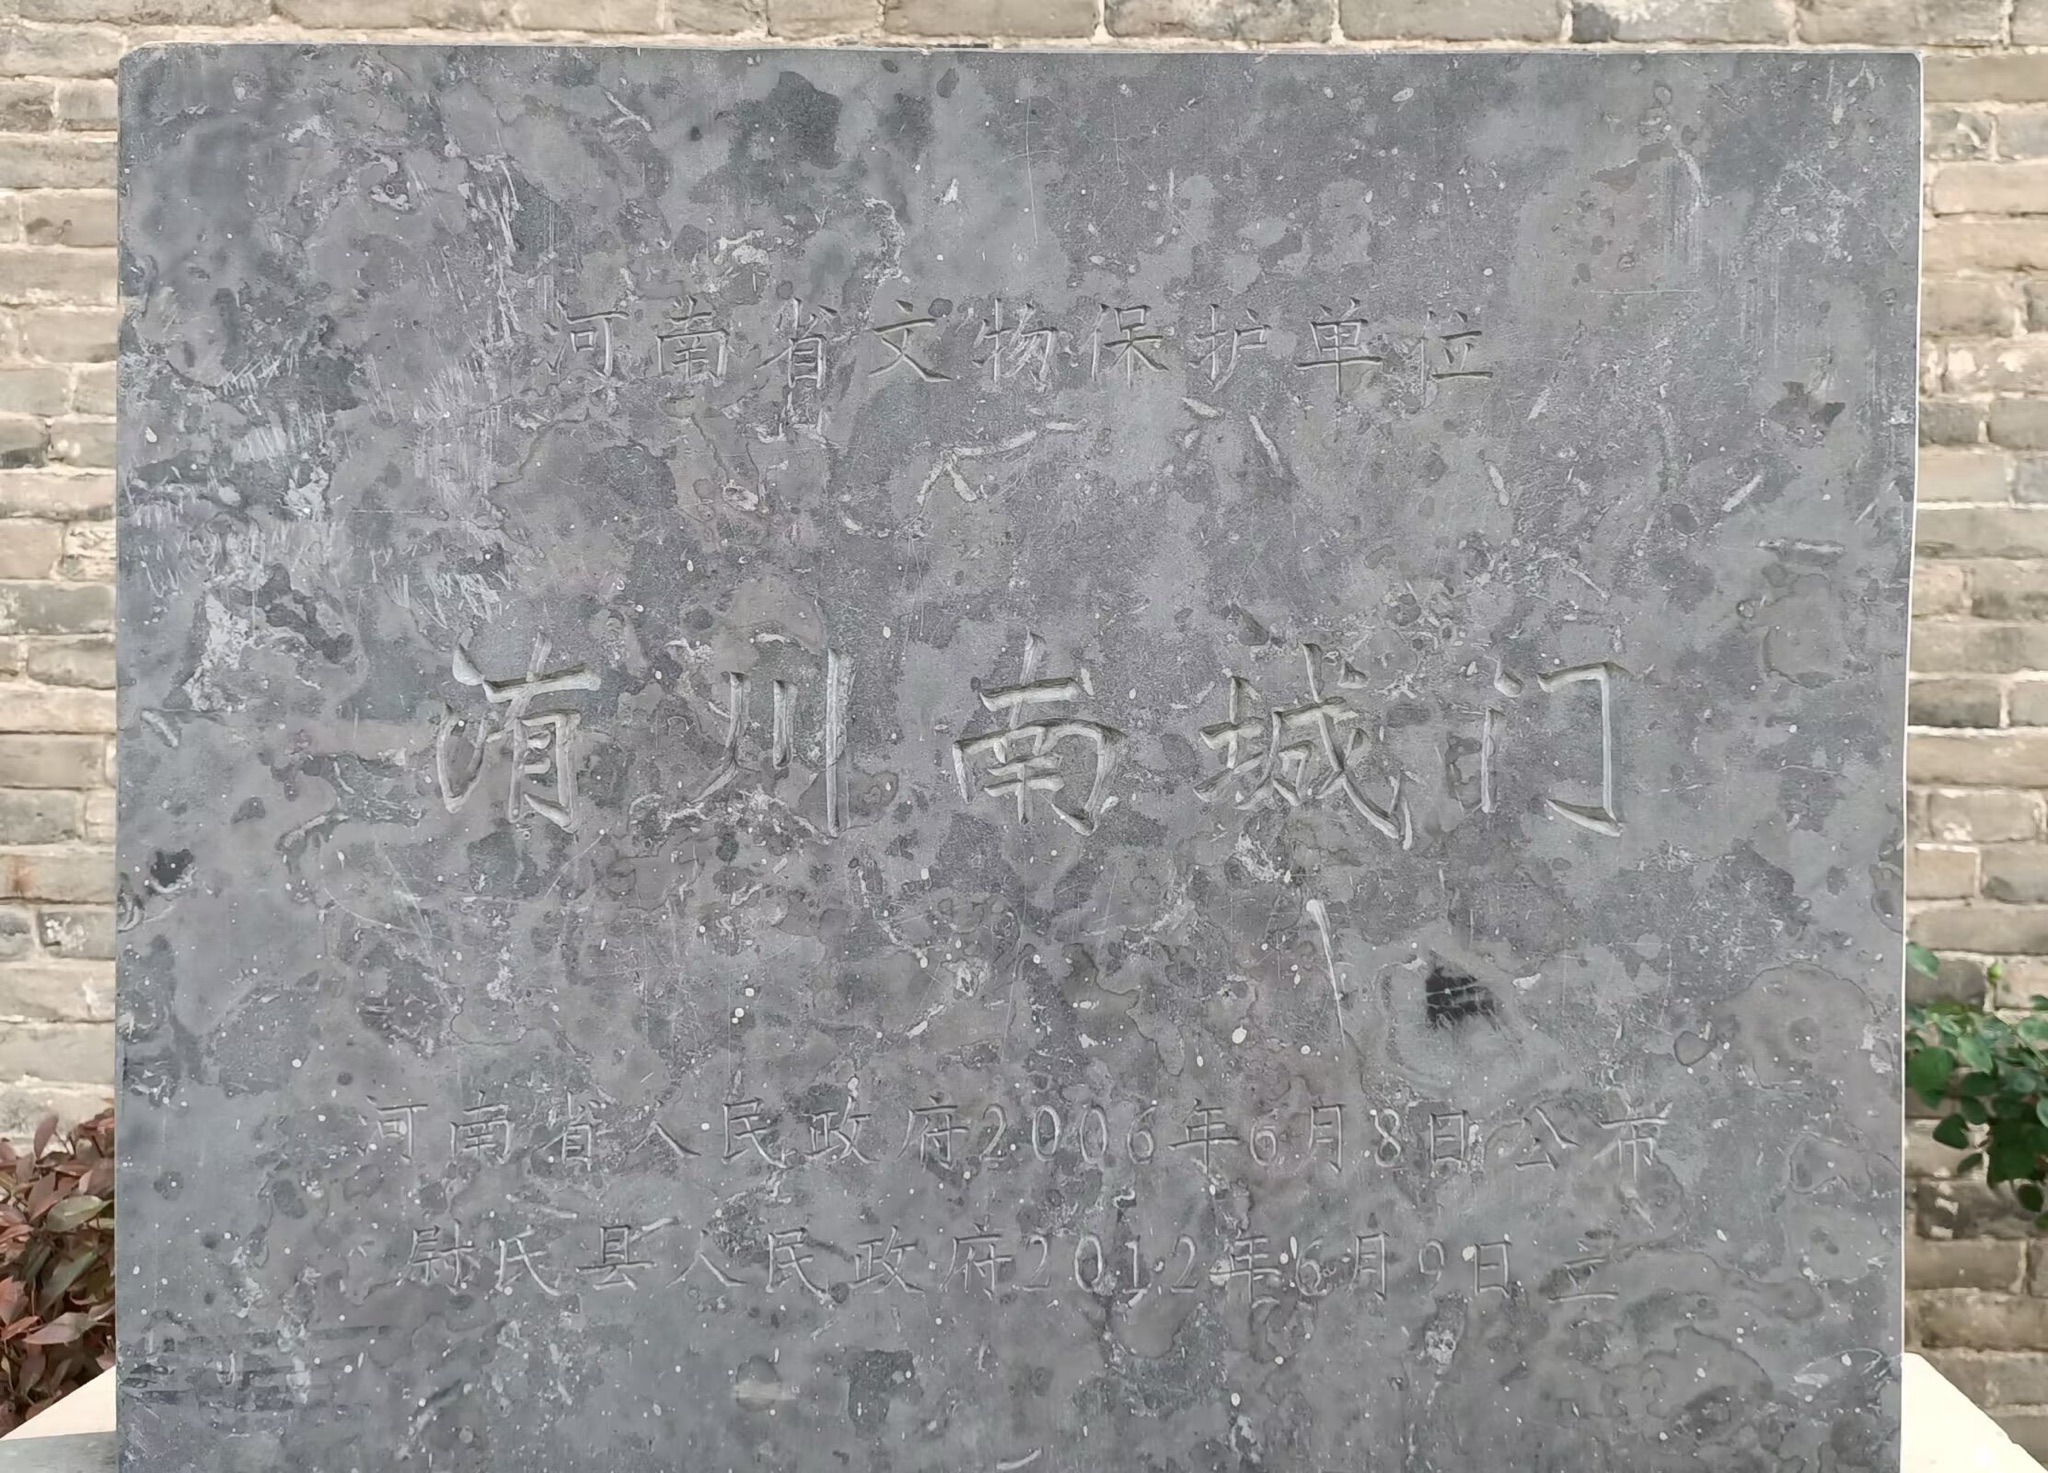 河南省文物保护单位
洧川南城门
河南省人民政府2006年6月8日公布
尉氏县人民政府2012年6月9日立